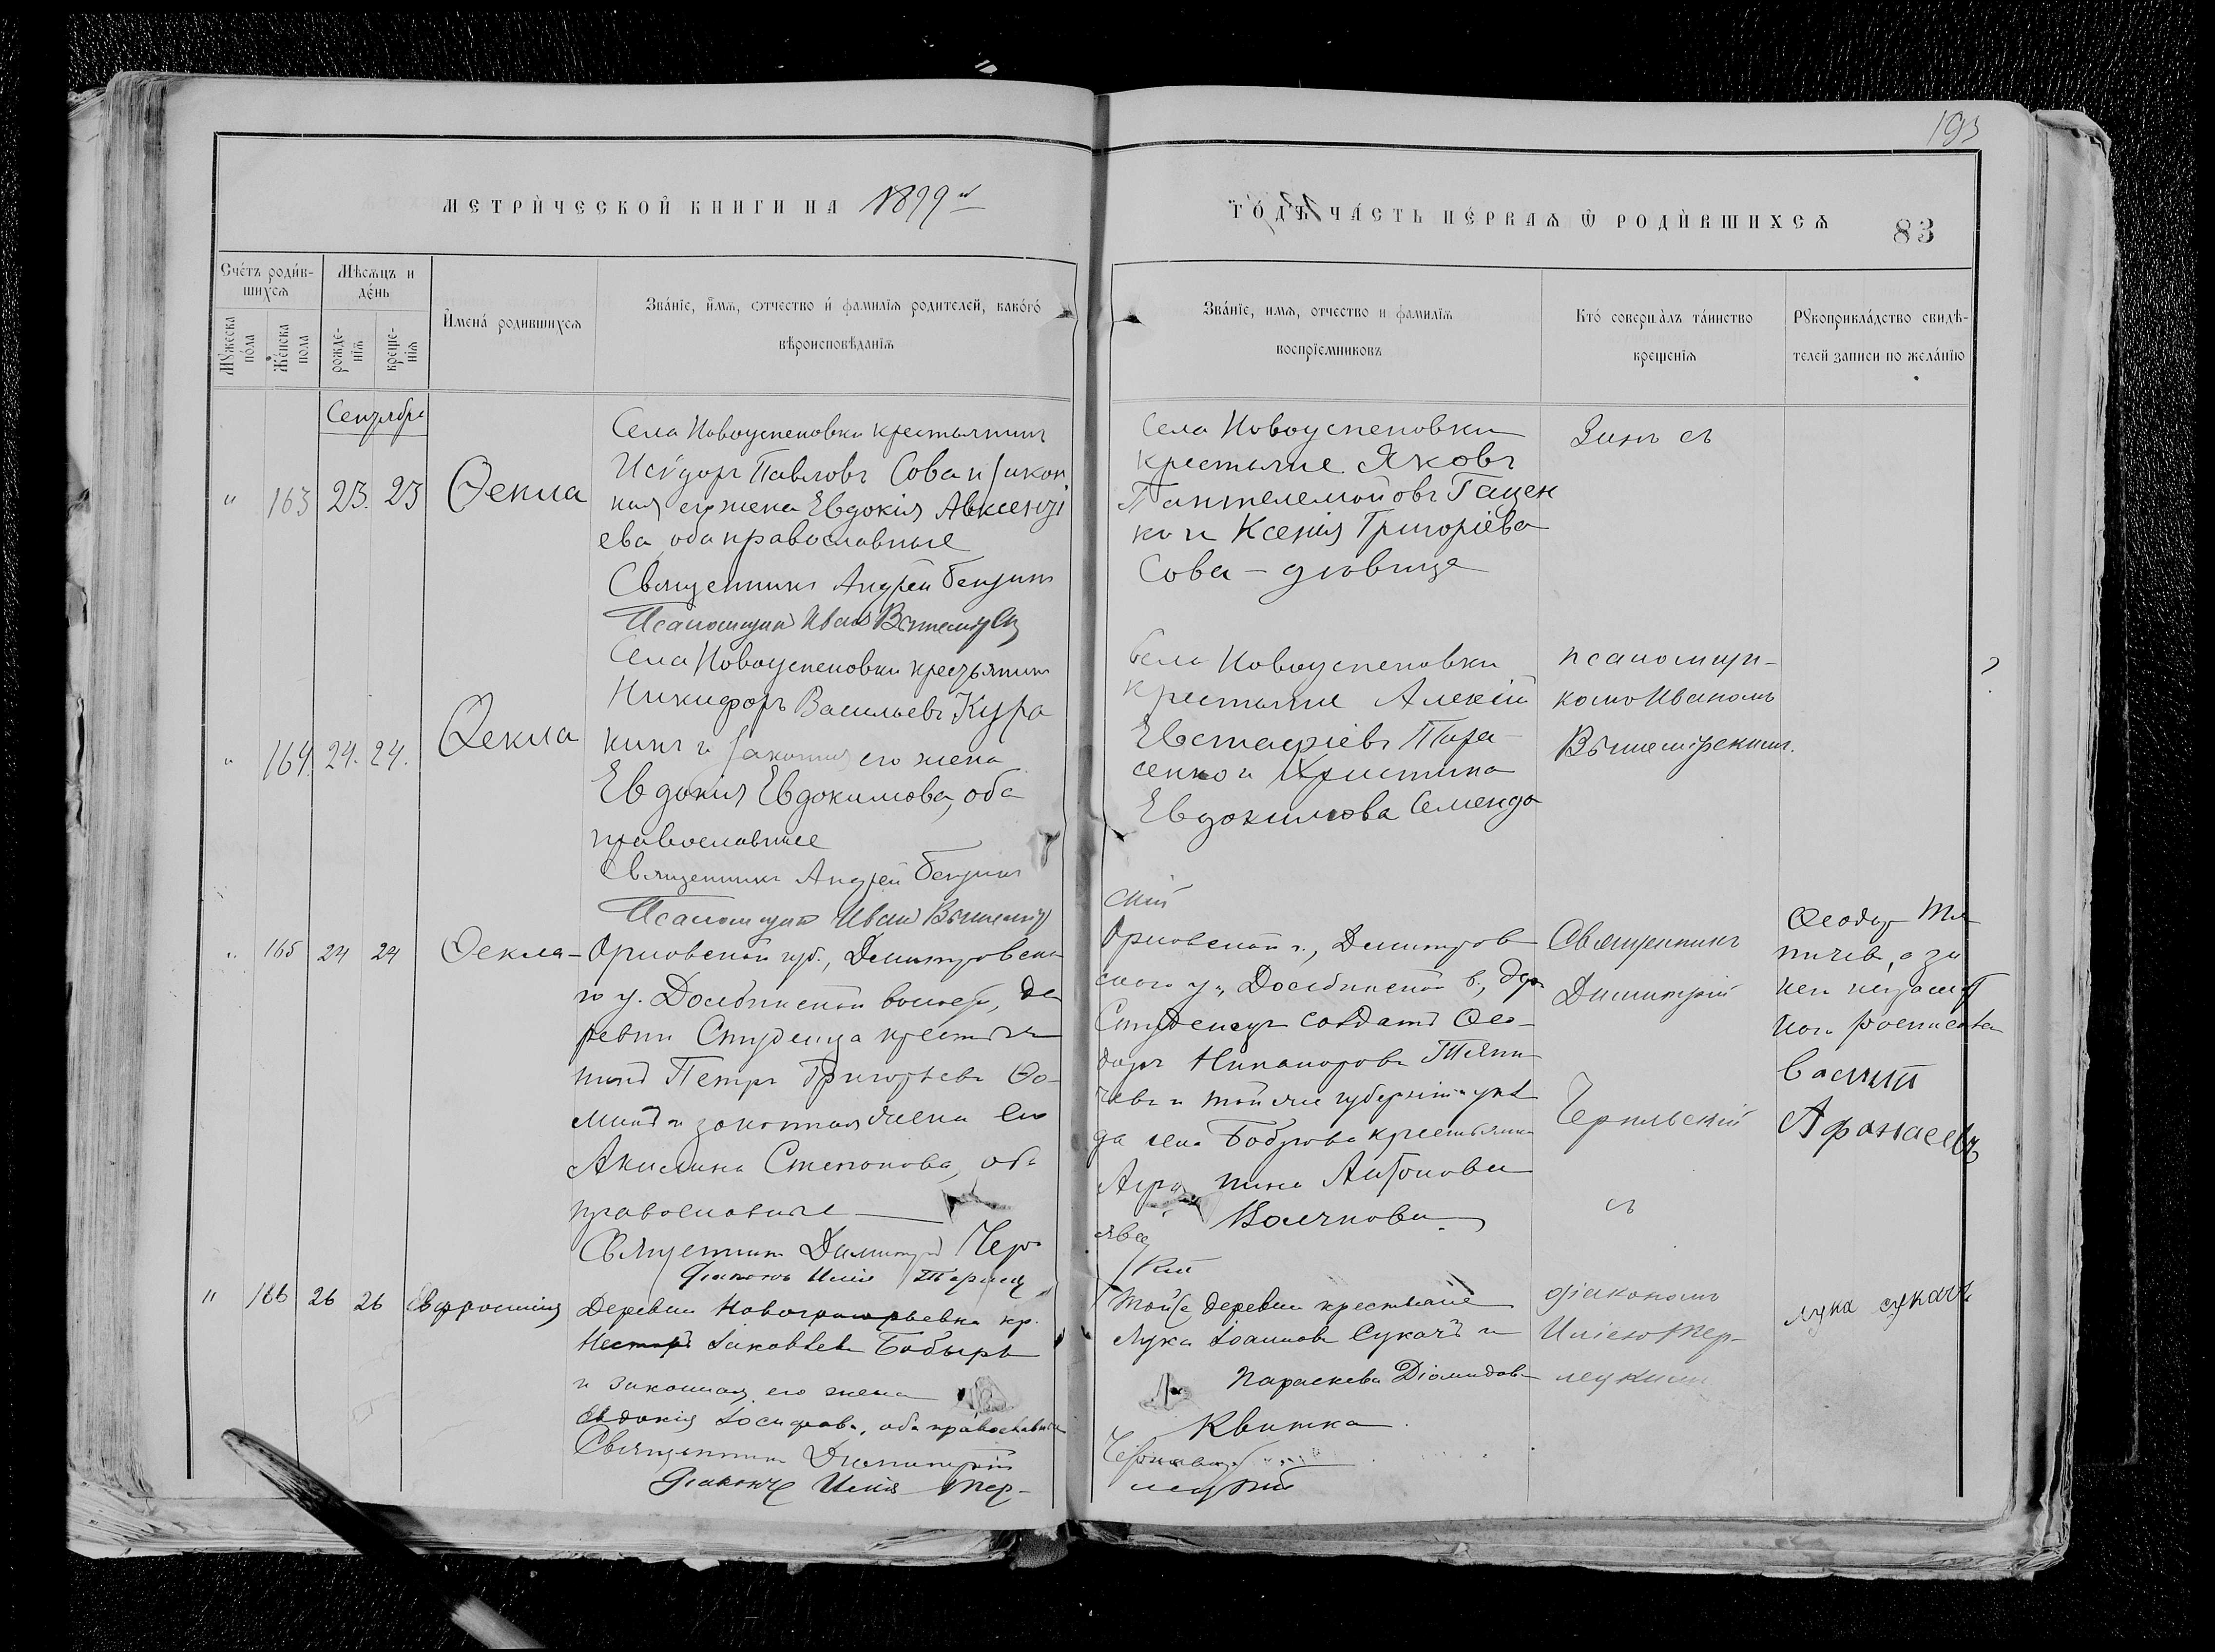 193
МЕТРИ́ЧЕСКОЙ КНИГИ НА 1899й
ГО́ДЪ ЧА́СТЬ ПЕ́РВАѦ Ѡ РОДИ́ВШИХСѦ 83
Сче́тъ роди́в-
шихсѧ
Мꙋжеска
по́ла
Же́нска
пола
Мѣсѧцъ и
де́нь
рожде-
нїѧ
креще-
нїѧ
И҆мена́ родившихсѧ
Зва́нїе, и҆мѧ, ѻтчество и҆ фамилїѧ родителей, како́гѡ
вѣроисповѣданїѧ
Зва́нїе, имѧ, отчество и фамилїѧ
воспрїемниковъ
Кто́ соверша́лъ та́инство
крещенїѧ
Рꙋкоприкла́дство свидѣ-
телей записи по жела́нїю
Сентября
" 163 23. 23 Ѳекла
Села Новоуспеновки крестьянинъ
Исѵдоръ Павловъ Сова и закон
ная его жена Евдокія Авксентi
ева, оба православные
Священникъ Андрей
Псаломщикъ Иванъ
Села Новоуспеновки
крестьяне Яковъ
Пантелемоновъ Гацен
ко и Ксенія Григоріева
Сова – дѣвица
съ
" 164. 24. 24. Ѳекла
Села Новоуспеновки крестьянинъ
Никифоръ Васильевъ Кура
кинъ и законная его жена
Евдокія Евдокимова, оба
православные
Священникъ Андрей
Псаломщикъ Иванъ
Села Новоуспеновки
крестьяне Алексій
Евстафіевъ Тара-
сенко и Христина
Евдокимова Семенда
псаломщи-
комъ Иваномъ
?
" 165 24 24 Ѳекла-
Орловской губ., Димитровска-
го у. Долбинской волости, де
ревни Студенца крестья
нинъ Петръ Григорьевъ Ѳо-
минъ и законная жена его
Акилина Степанова, оба
православные
Священникъ Димитрій
Діаконъ Илія
скій
Орловской г., Димитров
скаго у., Долбинской в., дер.
Студенецъ солдатъ Ѳео-
доръ Никаноровъ
чевъ и той же губерніи и уѣз
да села Боброва крестьянка
пина Антонова
Волчкова
Священникъ
Димитрій
съ
Ѳеодоръ
чевъ, а за
него неграмот
наго росписался
Василій
Афанасевъ
" 166 26 26 Евфросинія
Деревни Новогригорьевки кр.
Несторъ Іаковлевъ Бобырь
и законная его жена
Евдокія Іосифова, оба православные
Священникъ Димитрій
Діаконъ Илія Тер-
Той же деревни крестьяне
Лука Іоанновъ Сукачъ и
Параскева Діомидова
Квитка
діакономъ
Иліею Тер-
лецкимъ
лука сукачъ